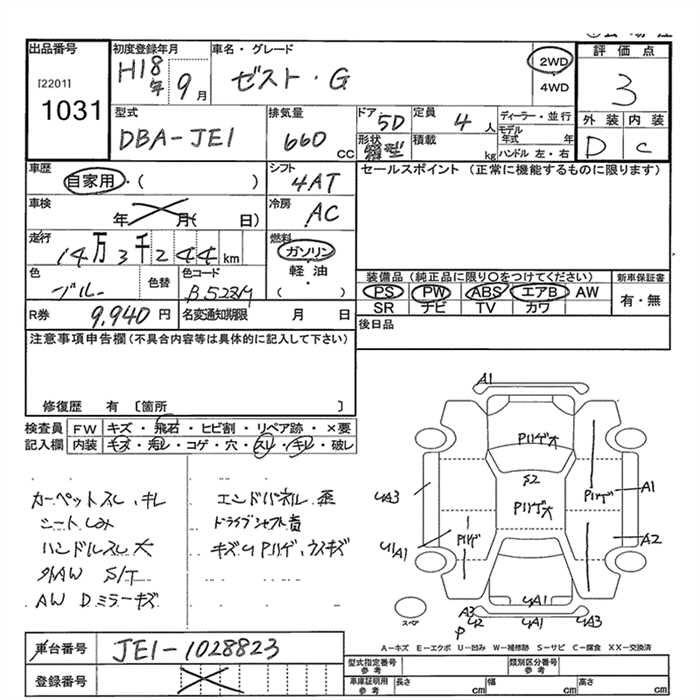 出品番号
[2201]
1031
初度登録年月
H18年 9月
車名・グレード
ゼスト・G
2WD
4WD
評価点
3
外装 内装
D C
型式
DBA-JE1
排気量
660 CC
ドア 5D
形状
定員 4 人
積載 kg
ディーラー・並行
モデル年式 年
ハンドル 左・右
車歴
自家用・( )
シフト
4AT
セールスポイント (正常に機能するものに限ります)
車検
年 月( 日)
冷房
AC
走行
14万3千244km
燃料
ガソリン
軽油
・
( )
色
ブルー
色替
色コード
B528M
装備品 (純正品に限り○をつけてください)
PS PW ABS エアB AW
SR ナビ TV カワ
新車保証書
有・無
R券 9,940円
名変通知期限 月 日
後日品
注意事項申告欄(不具合内容等は具体的に記入して下さい)
修復歴 有 〔箇所 〕
検査員
記入欄
FW キズ・飛石・ヒビ割・リペア跡・×要
内装 キズ・汚レ・コゲ・穴・スレ・キレ・破レ
カーペットスレ、キレ
シートしみ
ハンドルスレ大
外AW S/T
AW Dミラーキズ
エンドパネル 歪
ドライブシャフト音
キズUPハゲ、ウスキズ
A1
Pハゲ大
S2
Pハゲ大
Pハゲ
A1
UA3
UA1
Pハゲ
A2
UA1
A3
U2
P
UA1
UA3
スペア
A-キズ E-エクボ U-凹み W-補修跡 S-サビ C-腐食 XX-交換済
車台番号
JE1-1028823
登録番号
型式指定番号
参考
類別区分番号
参考
車庫証明用
参考
長さ cm
幅 cm
高さ cm